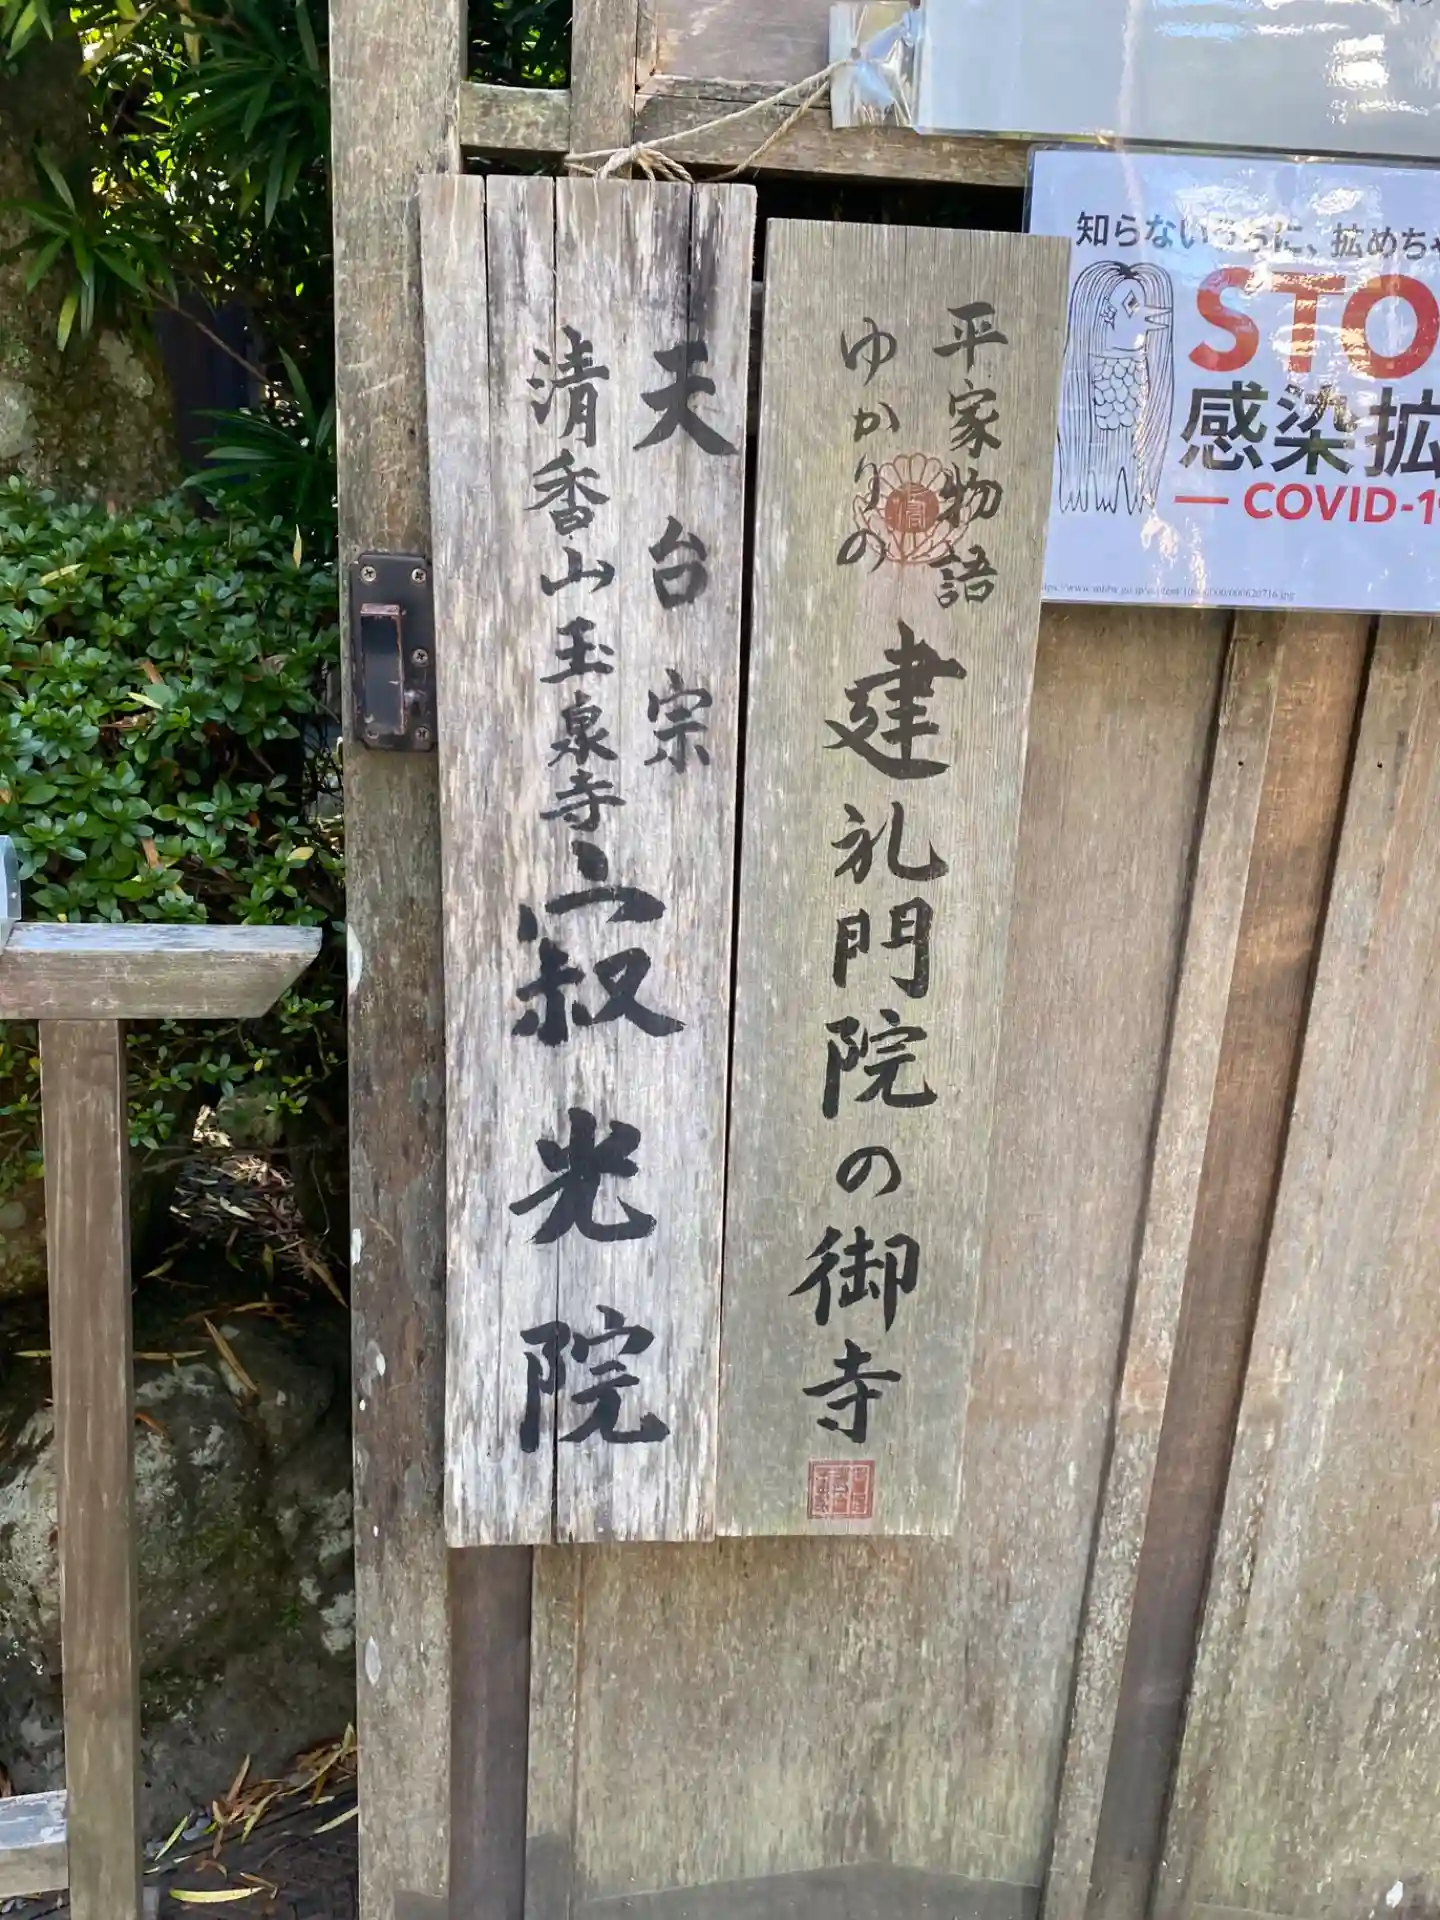 平家物語
ゆかりの
建礼門院の御寺
天台宗
清香山玉泉寺
寂光院
知らないうちに、拡めち
STO
感染拡
— COVID-1